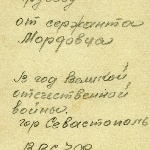 от сержанта
Мордовца
год Великой
отечественной
войны.
гор Севастополь